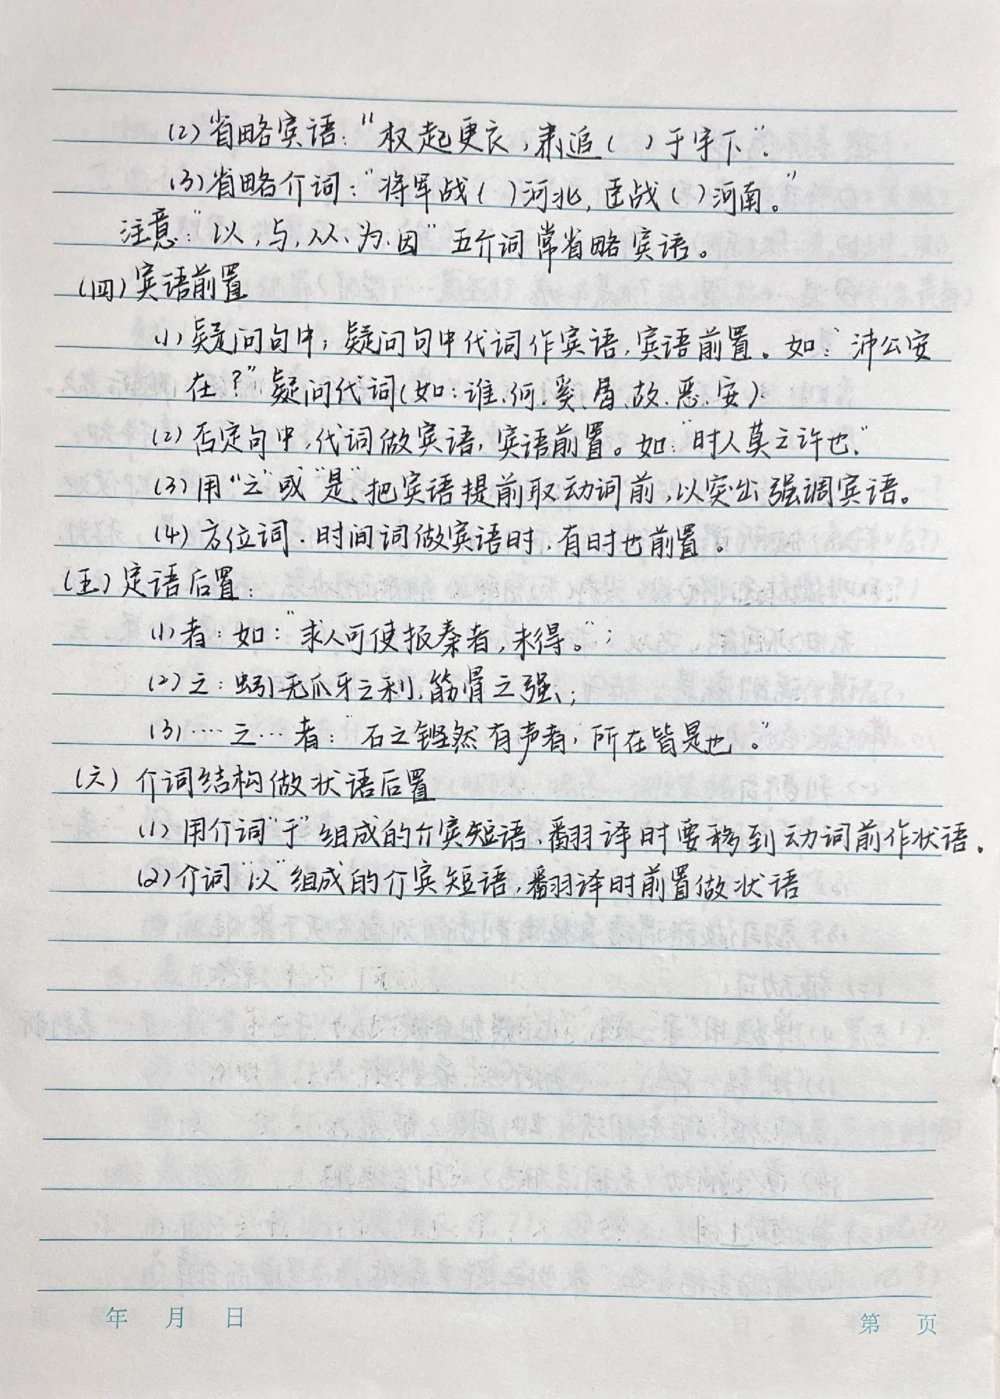 (2)省略宾语：“权起更衣，肃追（ ）于宇下”.
(3)省略介词：“将军战（ ）河北，臣战（ ）河南。”
注意：“以、与、从、为、因”五介词常省略宾语。
(四)宾语前置
(1)疑问句中：疑问句中代词作宾语，宾语前置。如：“沛公安
在？”疑问代词(如：谁、何、奚、胥、故、恶、安)
(2)否定句中，代词做宾语，宾语前置。如：“时人莫之许也.”
(3)用“之”或“是”把宾语提前取动词前，以突出强调宾语。
(4)方位词、时间词做宾语时，有时也前置。
(五)定语后置：
(1)者：如：“求人可使报秦者，未得。”；
(2)之：蚓无爪牙之利，筋骨之强；
(3)……之…者：“石之铿然有声者，所在皆是也。”
(六)介词结构做状语后置
(1)用介词“于”组成的介宾短语，翻译时要移到动词前作状语.
(2)介词“以”组成的介宾短语，翻译时前置做状语
年 月 日
第 页